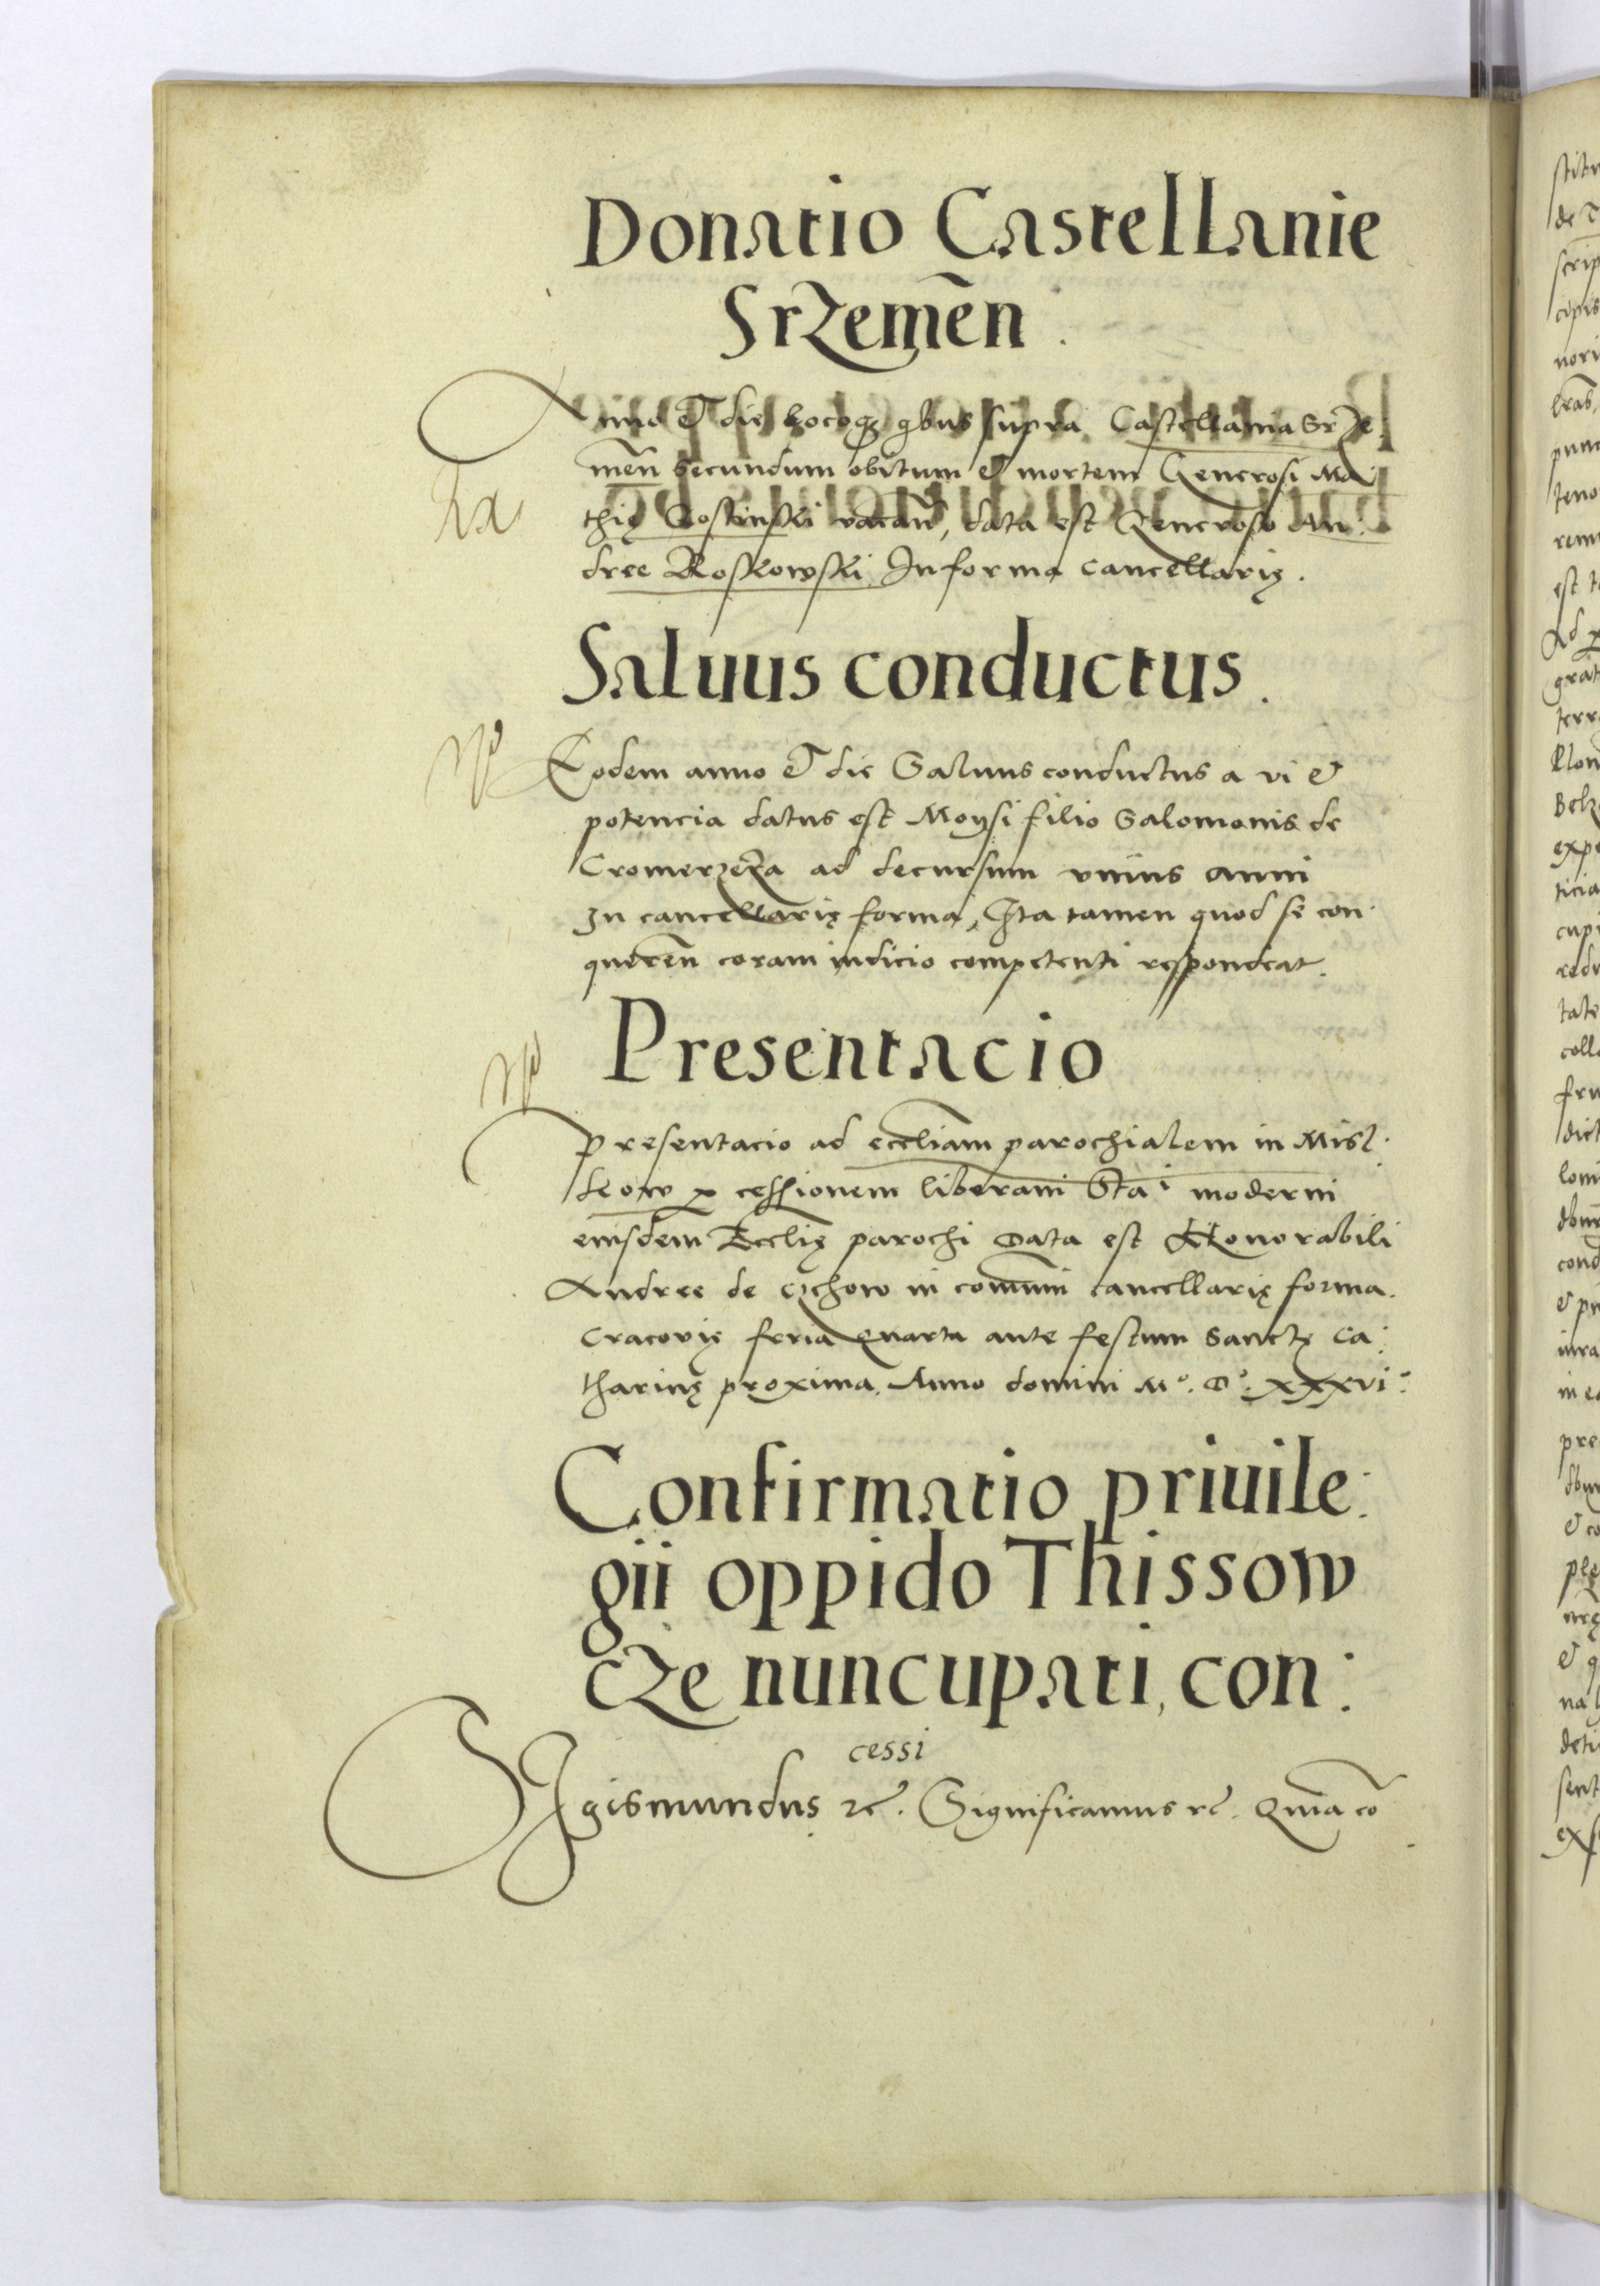 Donatio Castellanie
Srzemen̄.
Anno et die locoq̢ q̄bus supra Castellania Srze
men̄ secundum obitum et mortem Generosi Ma
thię Gostinski vacan̄, data est Generoso An:
dree Roskowski In forma cancellarię.
Saluus conductus.
Eodem anno et die Saluus conductus a vi et
potencia datus est Moysi filio Salomonis de
Cromerzerza ad decursum vnius anni
In cancellarię forma, Ita tamen quod se con
queren̄ coram iudicio competenti respondeat.
Presentacio
Presentacio ad eccl̄iam parochialem in Misl
deow p̱ cessionem liberam Sta i moderni
eiusdem Eccl̄ię parochi Data est Honorabili
Andree de Czchow in com̄uni cancellarię forma.
Cracovię feria Quarta ante festum Sanctę Ca:
tharinę proxima. Anno domini Mº. Dº. xxxviº:
Confirmatio priuile:
gii oppido Thissow
cze nuncupati, con:
cessi
Sigismundus rc̄. Significamus rc̄. Quia co